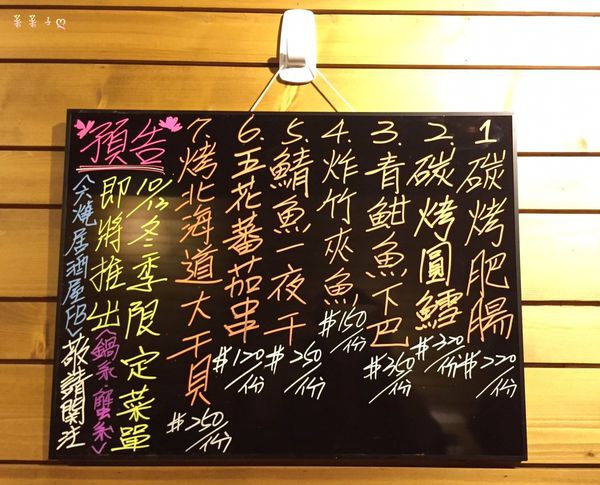 1.碳烤肥腸 $220/份
2.碳烤圓鱈 $320/份
3.青魽魚下巴 $350/份
4.炸竹夾魚 $150/份
5.鯖魚一夜干 $250/份
6.五花蕃茄串 $120/份
7.烤北海道大干貝 $250/份
預告
10/13冬季限定菜單
即將推出<鍋系蟹系>
燒居酒屋FB>敬請關注